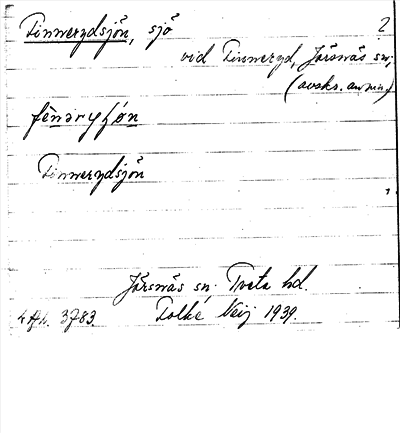 Finnerydsjön, sjö 2
vid Finneryd, Järsnäs sn.
(avskr. anm.)
Finnerydsjön
Järsnäs sn. Tveta hd.
3783. Folke Neij 1939.